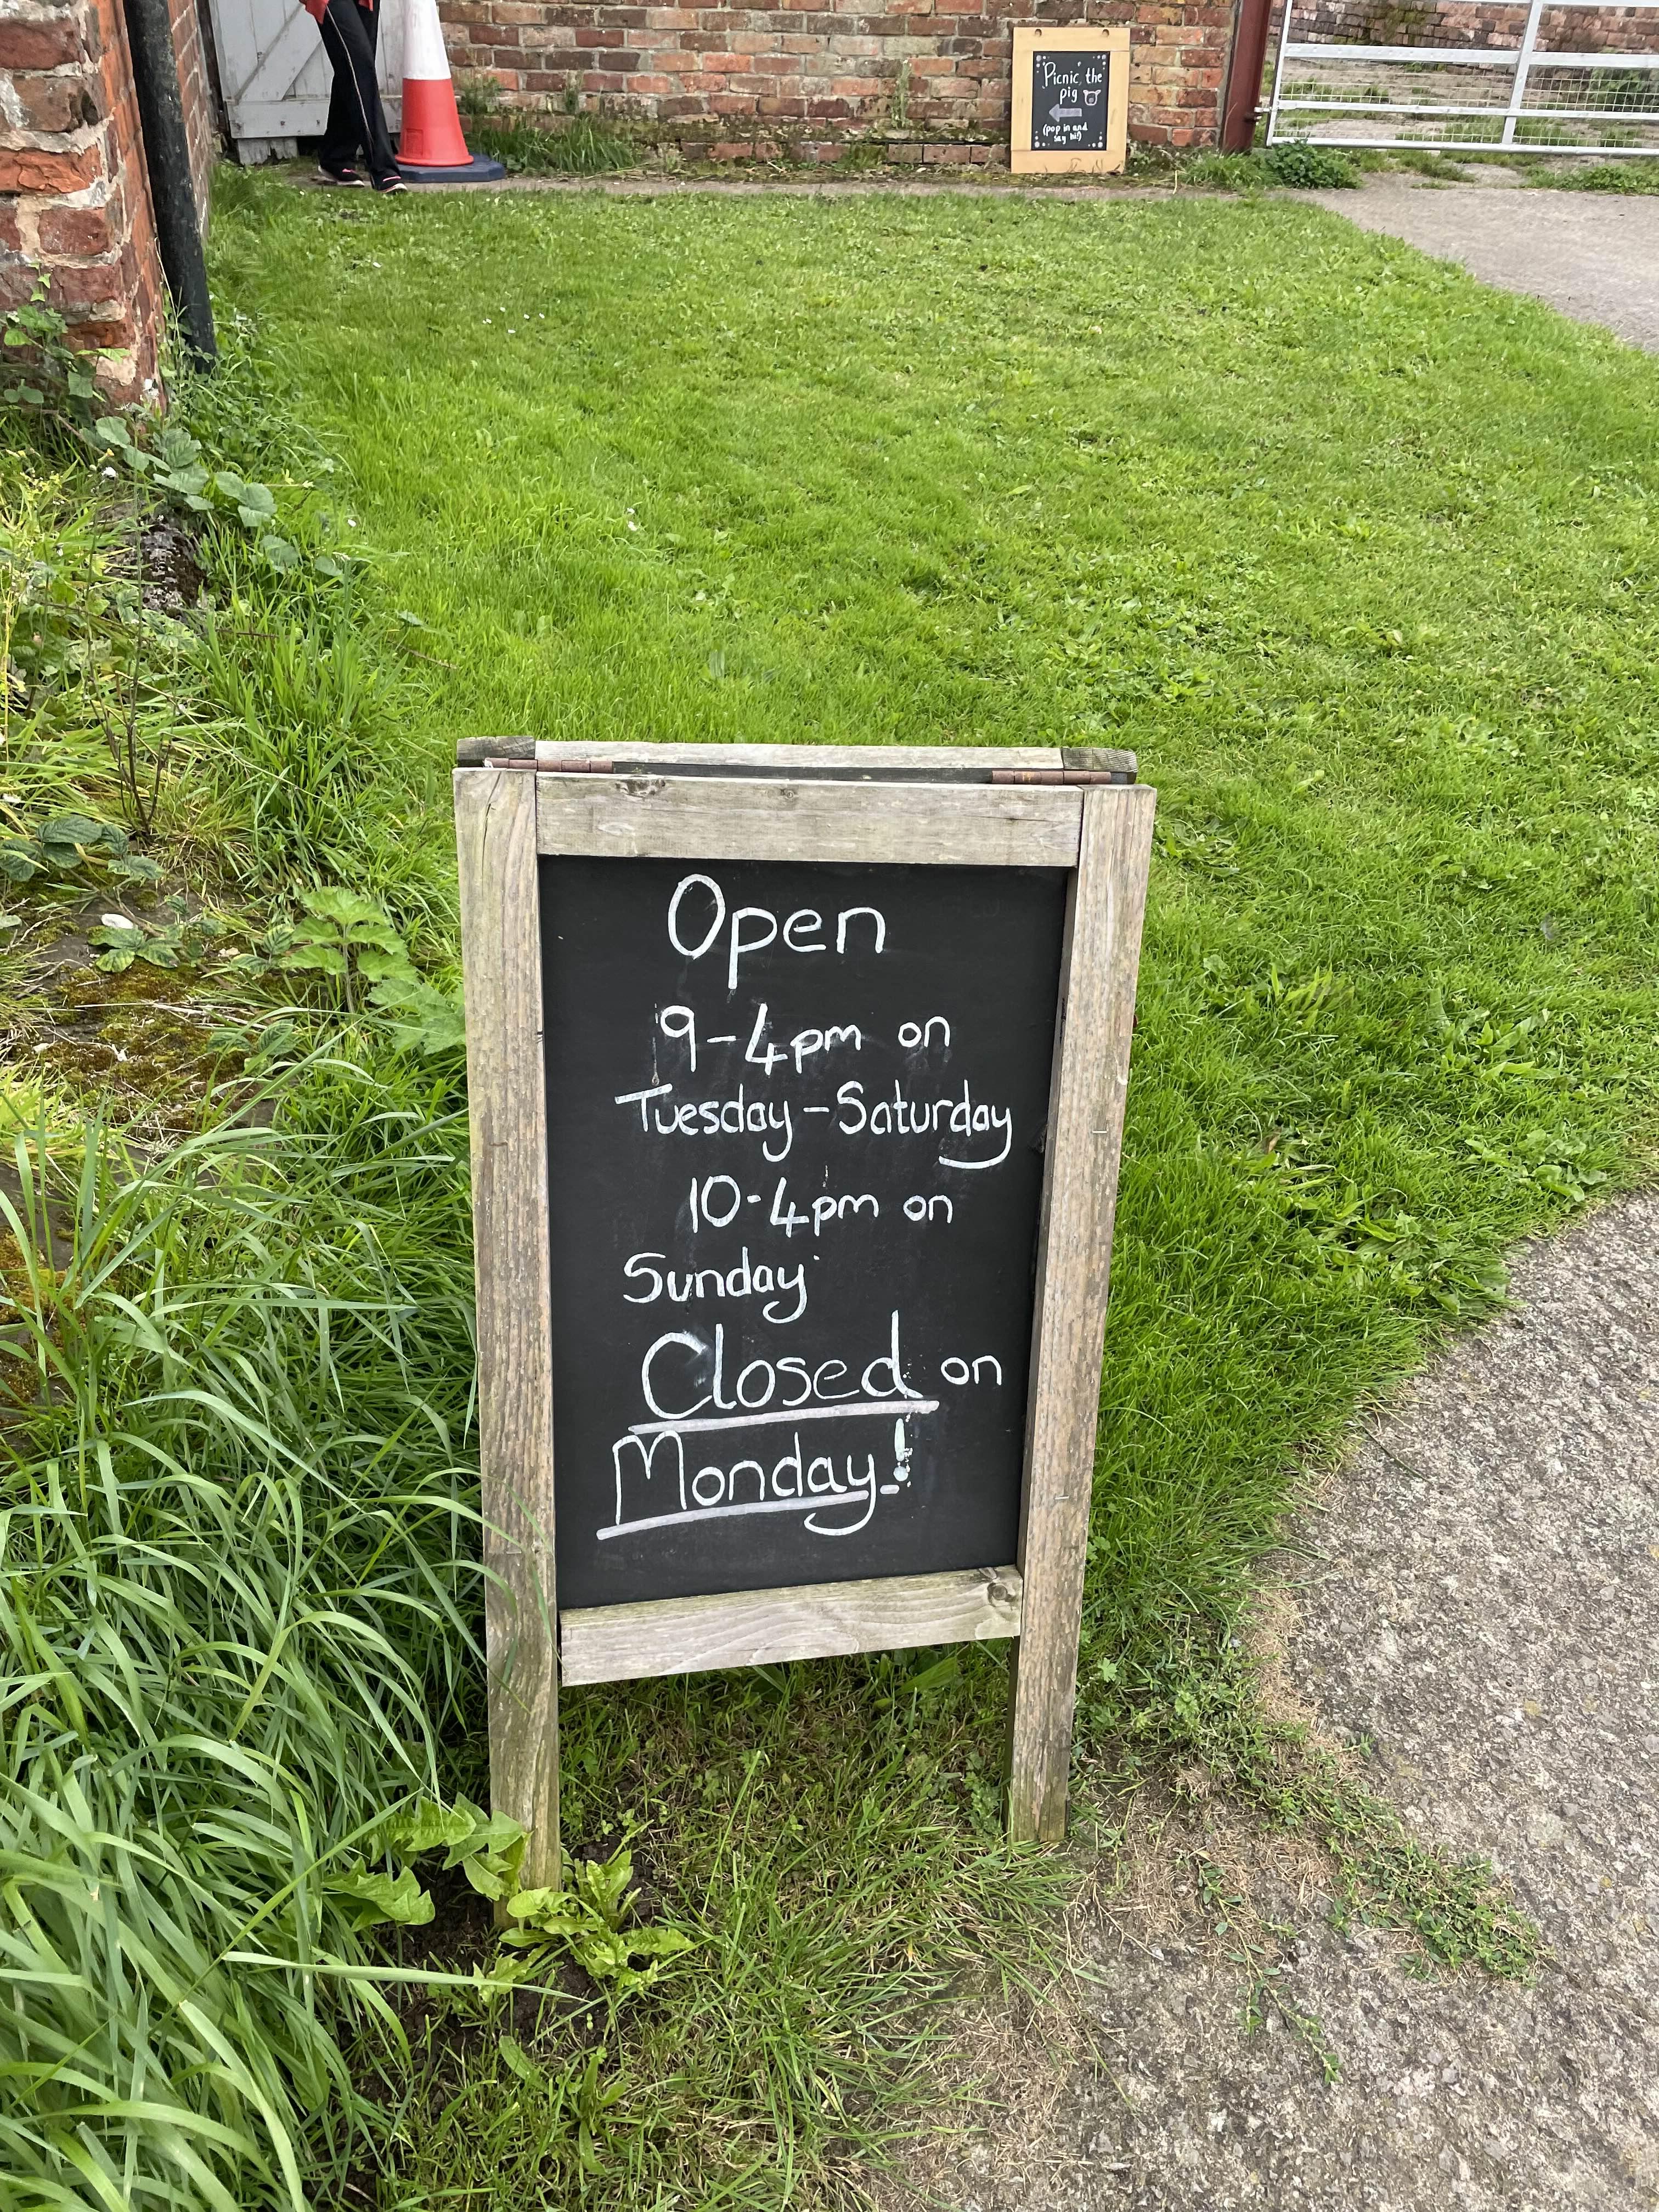 Picnic, the
pig
(pop in and
say hi!)
Open
9-4pm on
Tuesday-Saturday
10-4pm on
Sunday
Closed on
Monday!